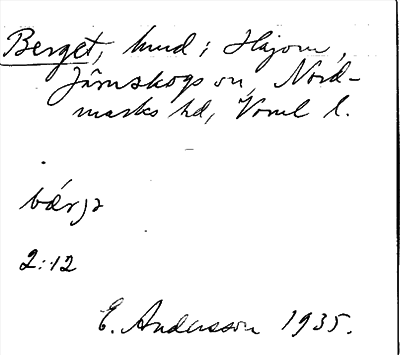 Berget, hmd i Häjom,
Järnskogs sn, Nord-
marks hd, Värml l.
bærjə
2:12
E. Andersson 1935.